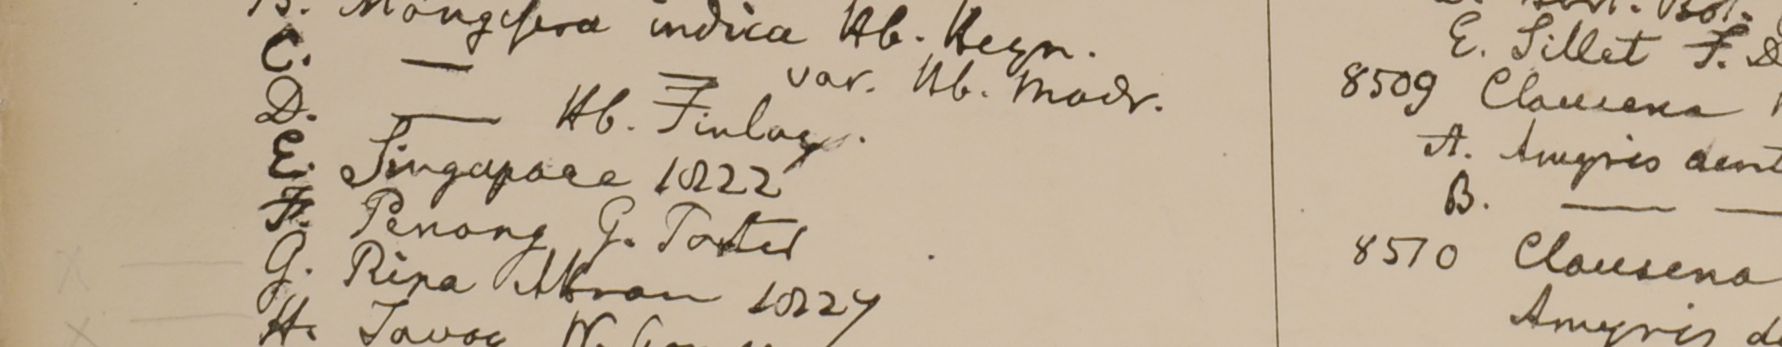 B. Mangifera indica Hb. Heyn.
C. — var. Hb. Madr.
D. — Hb. Finlays.
E. Singapore 1822
F. Penang G. Porter
G. Ripa 1827
H. Tavoy W.
E. Sillet F. D
8509 Clausena
A. Amyris dent
B. — —
8510 Clausena
Amyris de